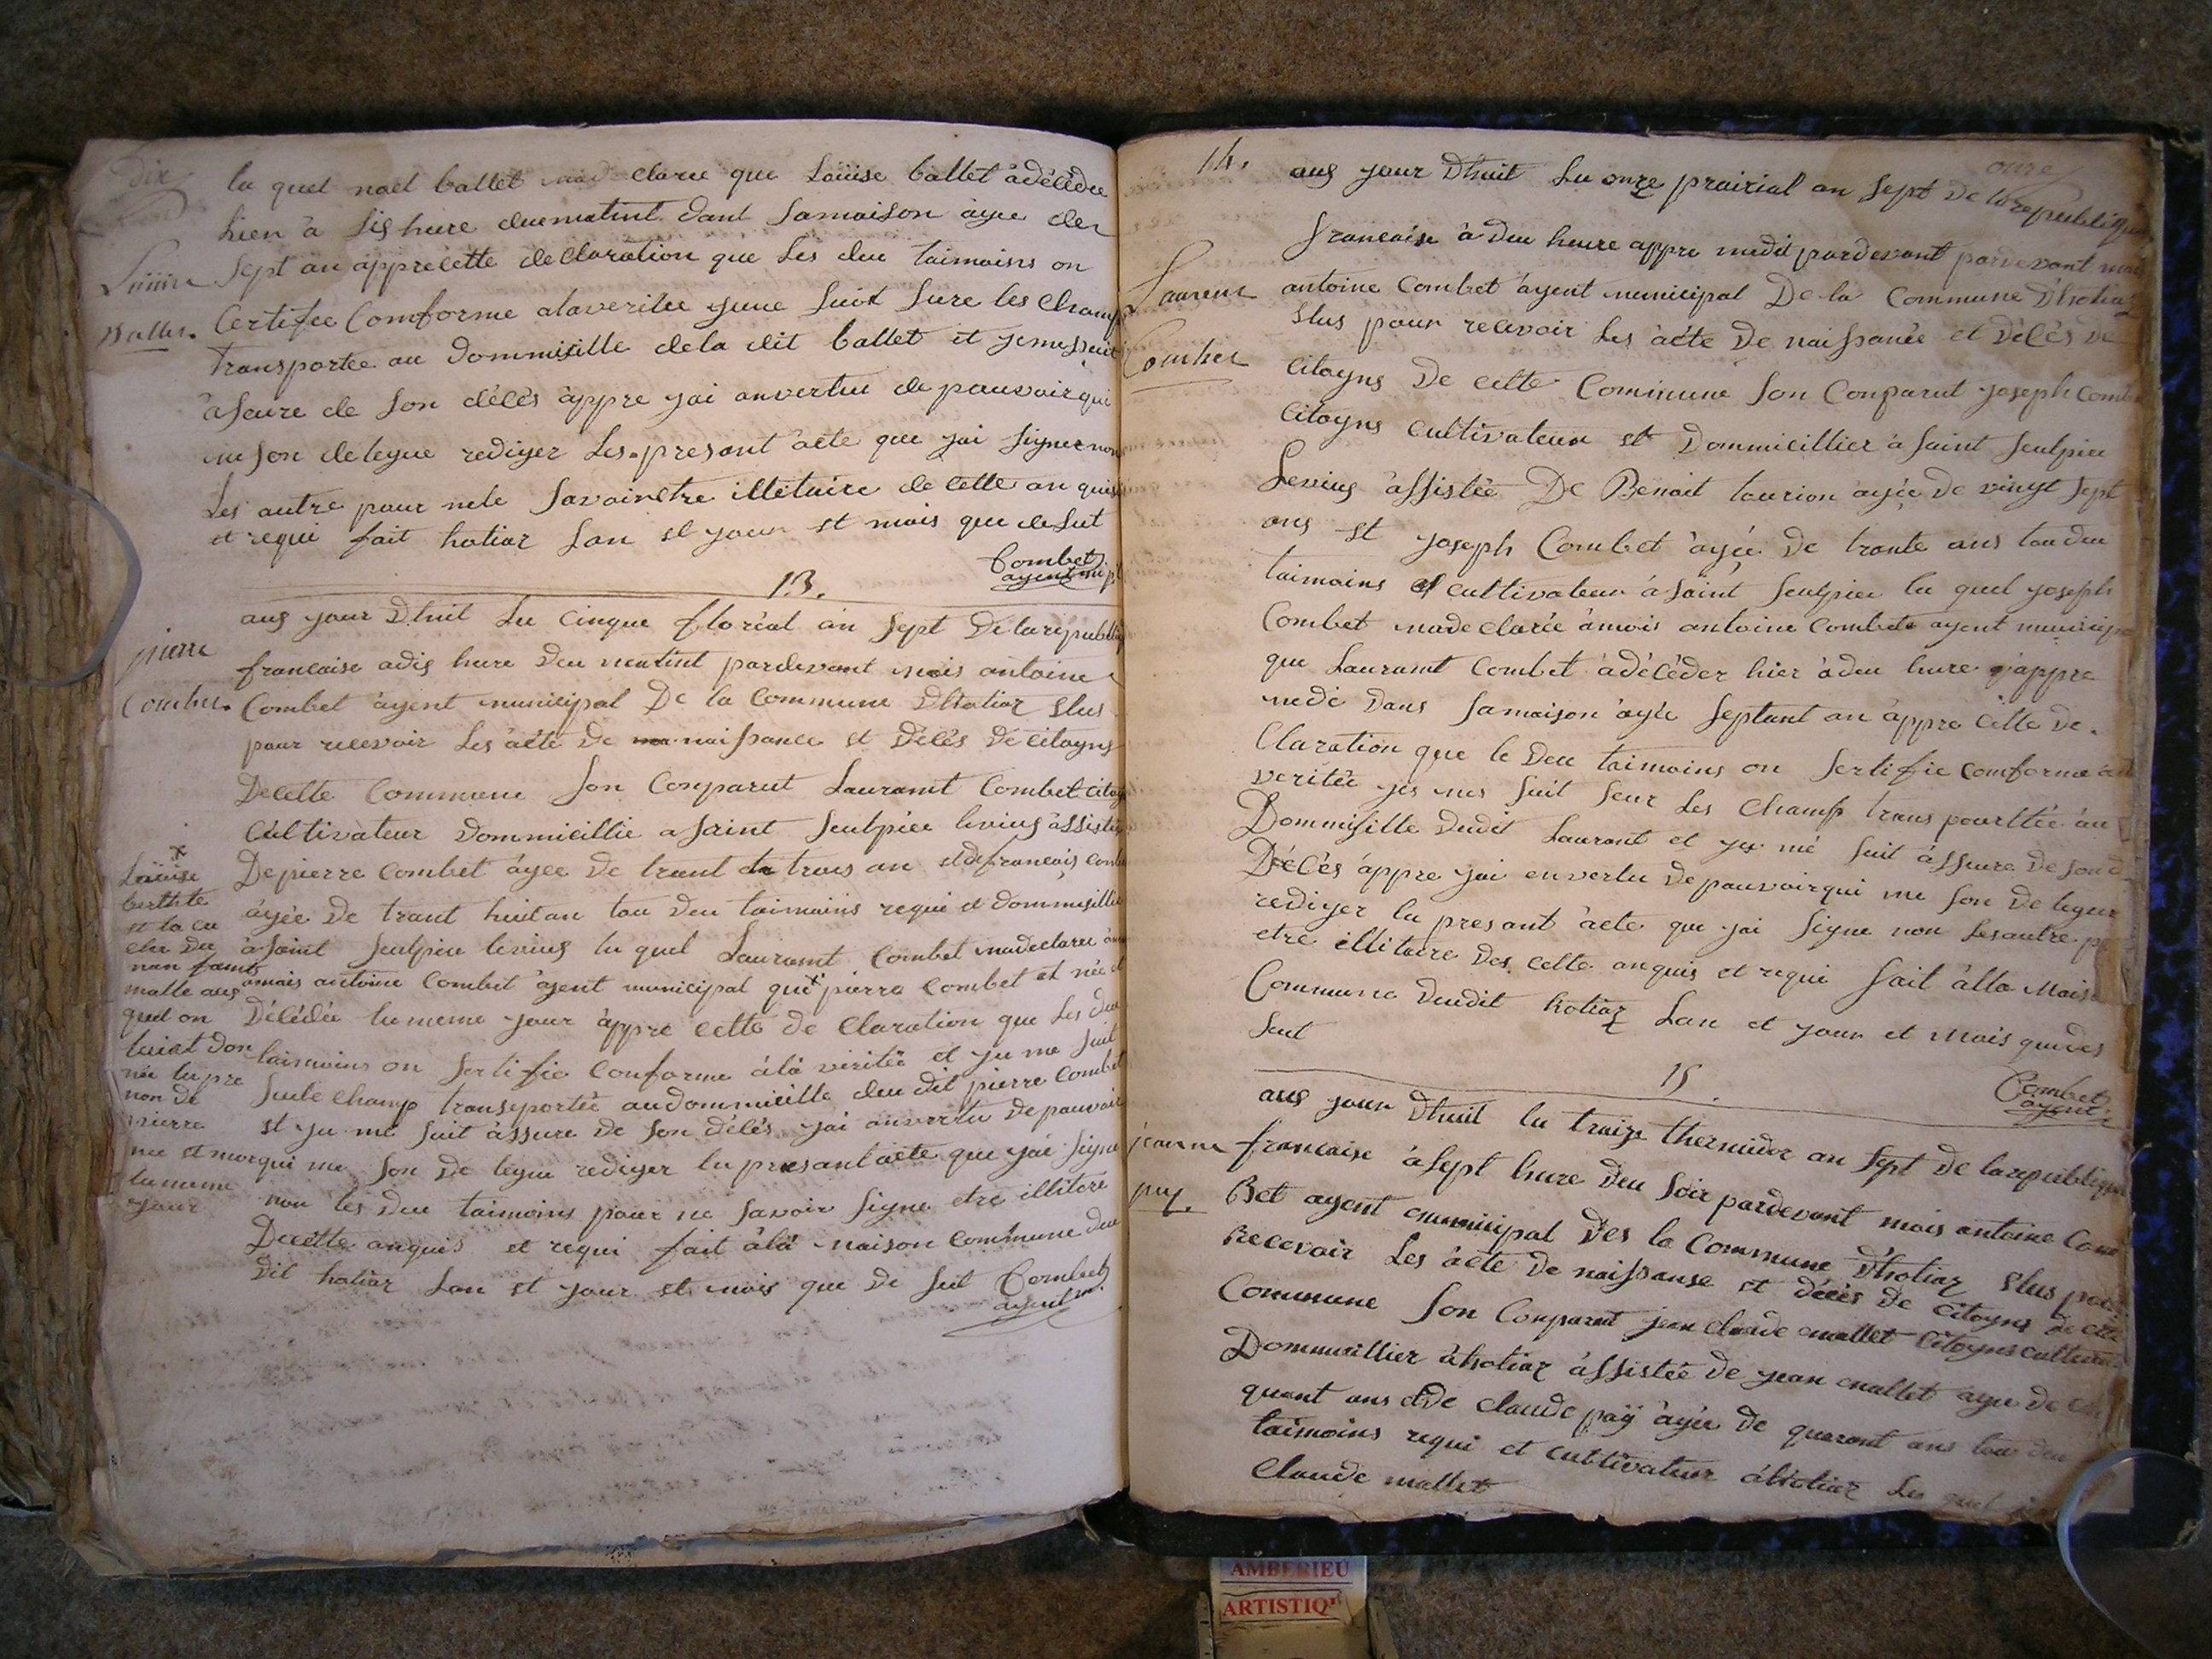 dix
la quel noel ballet mad claree que Loüise ballet àdécédee
hien à sis hure duematint dant samaison àgee de
Loüise
Ballet.
Sept an apprecette declaration que les deu taimoins on
Certifee Comforme alaveritee jeme suit sure les champ
transportee au dommisille dela dit ballet et jemessuit
àseure de son décès àppre jai anvertue de pauvoir qui
me son delegue rediger les presant acte que jai signer non
Les autre pour nele savoir etre illitaire de cette an quis
et requi fait hotiaz Lan et jour et mois que desut
Combet
agent mpl
13.
pierre
Combet.
aus jour Dhuit Le Cinque floréal àn Sept De larepubliq
francaise adis hure Deu matint pardevant mois antoine
Combet àgent municipal De la Commune Dhotiaz Elus
pour recevoir Les àcte De naissance et Décès De citoyns
Decette Commune Son Conparut Lauramt Combet citoy
Cultivateur Dommicillie a Saint Seulpice levius àssistée
De pierre Combet àgee de trant de trois an et de francois comb
àgée De trant huit an tou Deu taimoins requi et dommisillie
à Saint Seulpice levius la quel Lauramt Combet madeclaree
amois antoine Combet àgent municipal que x pierre Combet et née et
Décédée lememe jour àppre cette de Claration que Les deu
taimoins on Sertifie Conforme àlà veritée et je me suit
Seurle champ transportée audommicille deu dit pierre Combet
et je me suit àssure de son décès jai anvertu De pauvoir
qui me son De legue rediger le presant àcte que jai signe
non les Deu taimoins pour ne savoir signe etre illitere
Decette anquis et requi fait àlà maison Commune deu
Dit hotiaz Lan et jour et mois que De sut Combet
agent m.
x
Loüise
berttete
et la cu
cher Deu
nan fant
malle aus
quel on
luiat don
née le pre
non de
pierre
nee et mor
lememe
jour
14.
onze
aus jour Dhuit Le onze prairial an Sept De la republique
francaise à deu heure appre midit pardevant pardevant moi
Laurent
Combet
antoine Combet àgent municipal De la Commune Dhotiaz
Elus pour recevoir Les àcte De naissance et Décès De
Citoyns De cette Commune Son Conparut joseph Comb
Citoyns Cultivateur et Dommicillier à Saint Seulpice
Levius àssistée De Benoit tourion àgée De vingt Sept
ans et joseph Combet àgée De trante ans tou deu
taimoins et cultivateur à Saint Seulpice la quel joseph
Combet made clarée àmois antoine Combet agent municipa
que Lauramt Combet àdécéder hier àdeu hure àppre
medi Dans Samaison àgée Septant an àppre cette De
Claration que le Deu taimoins on Sertifie Comforme àla
veritée jes mes suit seur Les Champ trans pourttée àu
Dommisille Dudit Laurant et jes mé suit àssure De son d
Décès àppre jai envertu De pauvoir qui me son De legue
rediger le presant àcte que jai signe non lesautre p
etre illitaire Des cette anquis et requi fait àlla Mais
Commune Deudit hotiaz Lan et jour et Mois quedes
Sut
Combet
agent
15.
jeanne
pay.
aus jour Dhuit le traize thermidor an Sept De larepublique
francaise àSept hure Deu Soir pardevant mois antoine Com
Bet agent municipal Des la Commune Dhotiaz Elus pou
Recevoir Les àcte De naissanse et décès De Citoyns De cette
Commune Son Conparut jean claude mallet Citoyns cultiva
Dommicillier àhotiaz àssistée de jean mallet agee De
quant ans et De Claude paÿ àgée De quarant ans tou deu
taimoins requi et cultivateur àhotiaz Les quel
Claude mallet
AMBERIEU
ARTISTIQ